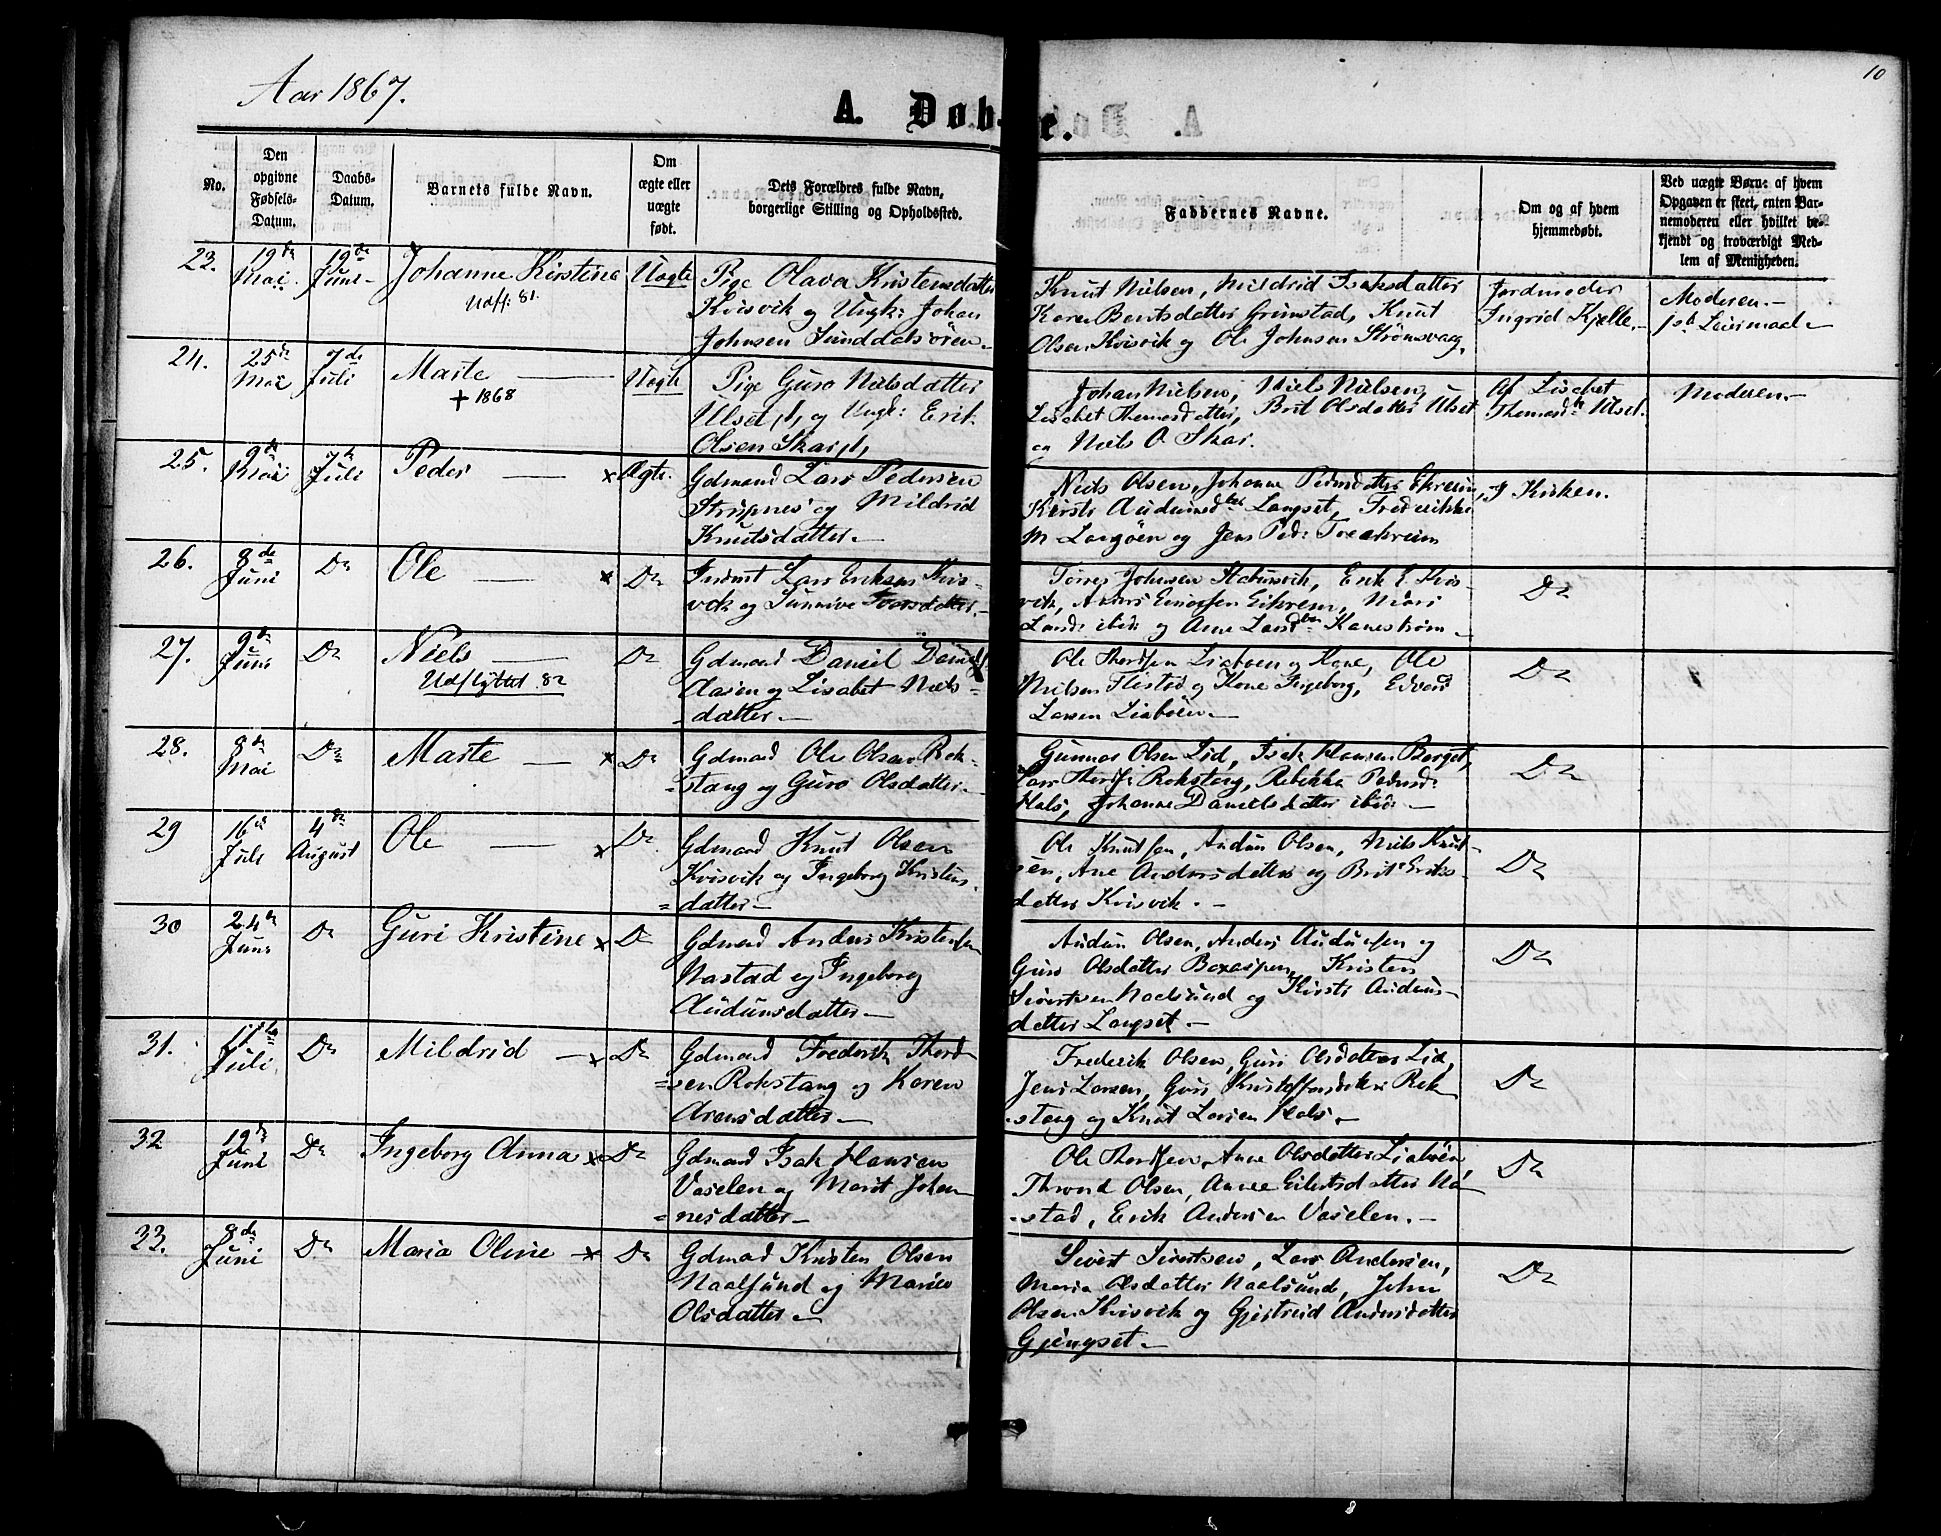 Aar 1867.
10
A. Døbte.
No.
Den opgivne Fødsels-Datum.
Daabs-Datum.
Barnets fulde Navn.
Om ægte eller uægte født.
Dets Forældres fulde Navn, borgerlige Stilling og Opholdssted.
Faddernes Navne.
Om og af hvem hjemmedøbt.
Ved uægte Børn: af hvem Opgaven er skeet, enten Barnemoderen eller hvilket bekjendt og troværdigt Medlem af Menigheden.
23. 19de Mai. 19de Juni Johanne Kirstine Udfl: 81. Uægte
Pige Olava Kristensdatter
Kvisvik og Ungk: Johan
Johnsen Sunddalsören.
Knut Nielsen, Mildrid Isaksdatter
Karen Berntsdatter Grimstad, Knut
Olsen Kvisvik og Ole Johnsen Strømsvaag.
Jordmoder
Ingrid Kjelle.
Moderen.
24. 25de Mai 7de Juli Marte + 1868 Uægte
Pige Guro Nielsdatter
Ulset og Ungk: Erik
Olsen Skar
Johan Nielsen, Niels Nielsen,
Lisabet Thomasdatter, Brit Olsdatter Ulset
og Niels O. Skar.
Af Lisabet
Thomasdtr Ulset.
Moderen.
25. 9de Mai 7de Juli Peder x Ægte.
Gdmand Lars Pedersen
Stripnes og Mildrid
Knutsdatter.
Niels Olsen, Johanne Pedersdatter Ekreim,
Kirsti Audunsdtr Langset, Frederikke
M Langöen og Jens Ped: Treekrem
I Kirken.
26. 8de Juni Do Ole x Do
Inderst Lars Eriksen Kvis-
vik og Sunnive Iversdatter.
Torres Johnsen Stokersvik, Erik E. Kvis-
vik, Anders Einarsen Eikrem, Mari
Larsd: ibid: og Ane Larsdtr Kanestrøm
Do
27. 9de Juni Do Niels Udflyttet 82 Do
Gdmand Daniel Daniels
Aasen og Lisabet Niels-
=datter.
Ole Thordsen Liaböen og Kone, Ole
Nielsen Flistad og Kone Ingeborg, Edvard
Larsen Liaböen.
Do
28. 8de Mai Do Marte x Do
Gdmand Ole Olsen Rok-
=stang og Guro Olsdatter.
Gunnar Olsen Lid, Isak Hansen Berget,
Lars Thords: Rokstang, Rebekka Pedersd:
Hals, Johanne Danielsdatter ibid:
Do
29 16de Juli 4de August Ole x Do
Gdmand Knut Olsen
Kvisvik og Ingeborg Kristens-
=datter
Ole Knutsen, Audun Olsen, Niels Knut-
sen, Ane Andersdatter og Brit Eriks-
datter Kvisvik.
Do
30 24de Juni Do Guri Kristine x Do
Gdmand Anders Kristensen
Nastad og Ingeborg
Audunsdatter
Audun Olsen, Anders Audunsen og
Guro Olsdatter Boxaspen, Kristen
Sivertsen Naalsund og Kirsti Auduns-
datter Langset.
Do
31. 11te Juli Do Mildrid x Do
Gdmand Frederik Thord-
=sen Rokstang og Karen
Arensdatter
Frederik Olsen, Guri Olsdatter Lid,
Jens Larsen, Guri Kristoffersdatter Rok-
stang og Knut Larsen Hals.
Do
32 19de Juni Do Ingeborg Anna x Do
Gdmand Isak Hansen
Vaselen og Marit Johan-
=nesdatter
Ole Thordsen, Anne Olsdatter Liaböen,
Thrond Olsen, Anne Eilertsdatter Na-
stad, Erik Andersen Vaselen.
Do
33. 8de Juni Do Maria Oline x Do
Gdmand Kristen Olsen
Naalsund og Marie
Olsdatter.
Sivert Sivertsen, Lars Andersen,
Maria Olsdatter Naalsund, John
Olsen Kvisvik og Gjertrud Andersdatter
Gjengset.
Do